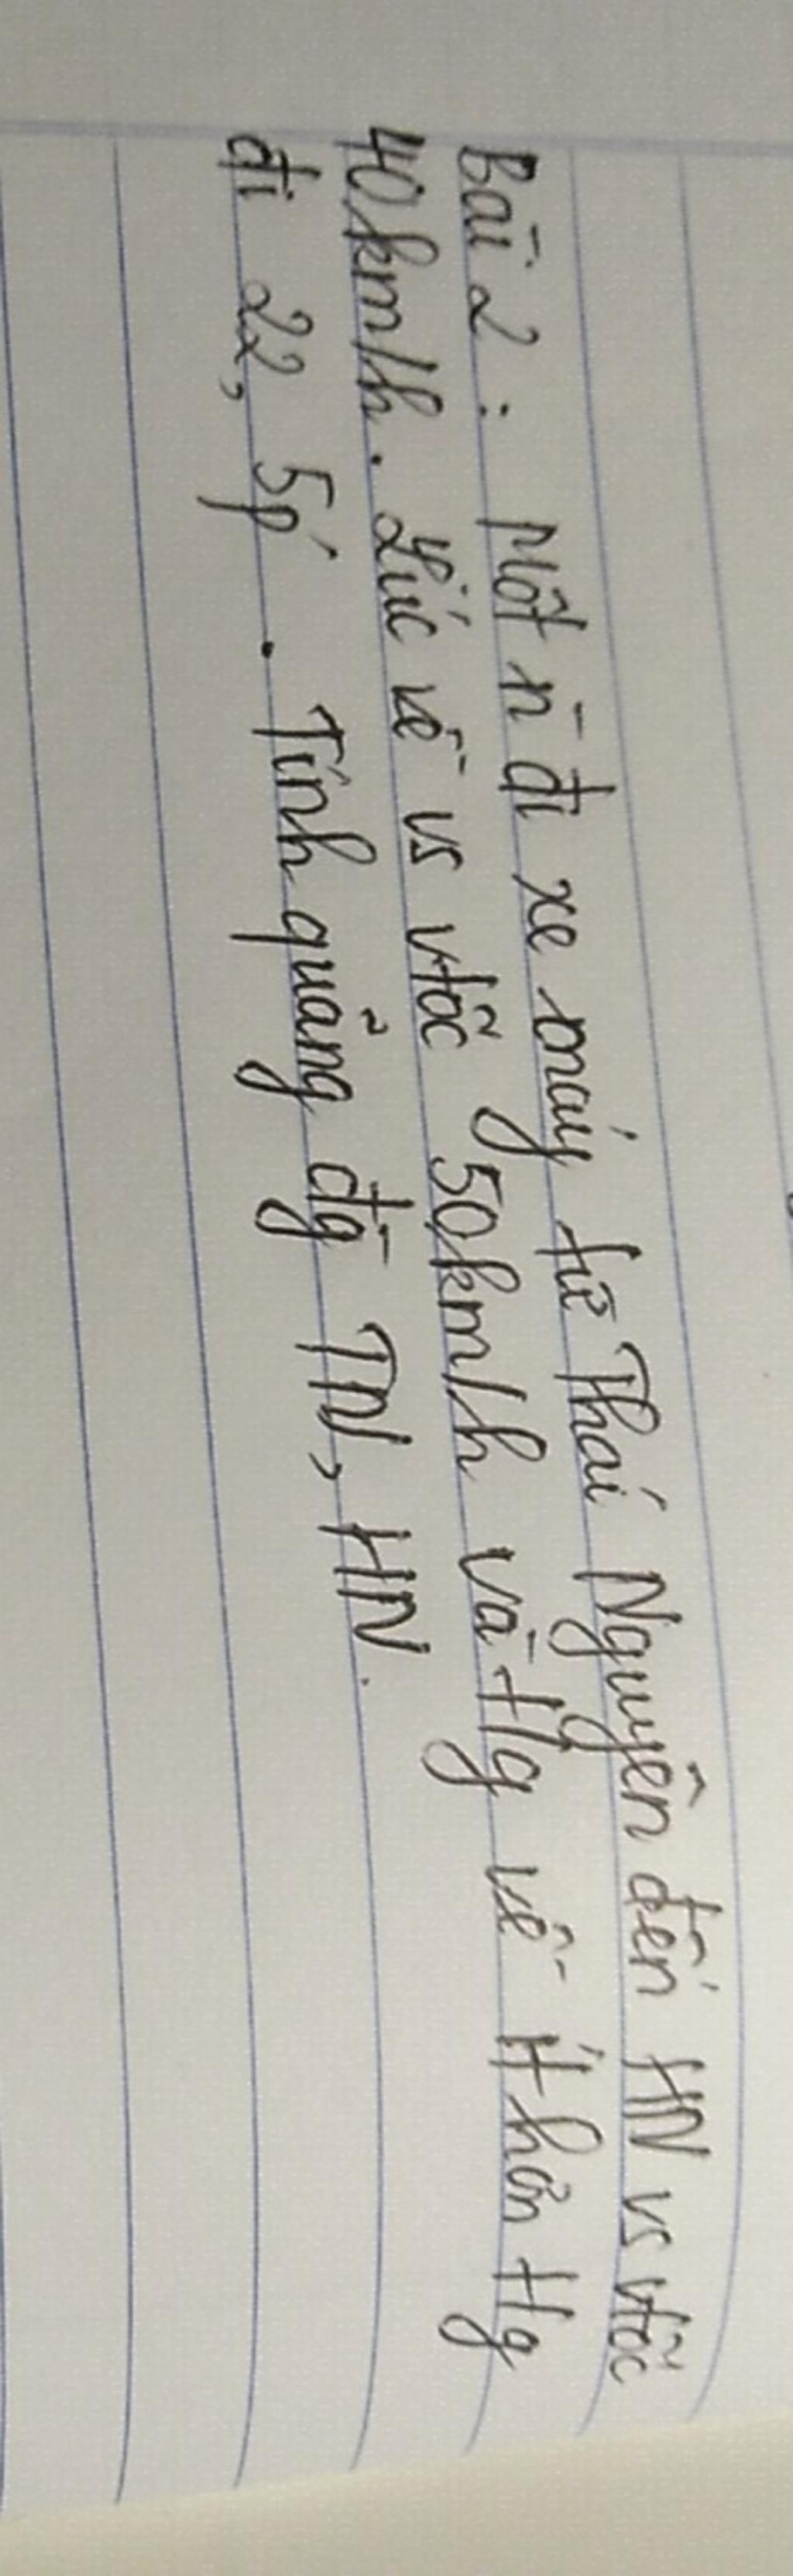 Bài 2 : Một n` đi xe máy từ Thái Nguyên đến HN vs vtốc
40km/h. Lúc về vs vtốc 50km/h và tg về ít hơn tg
đi 22,5p'. Tính quãng đg TN, HN.